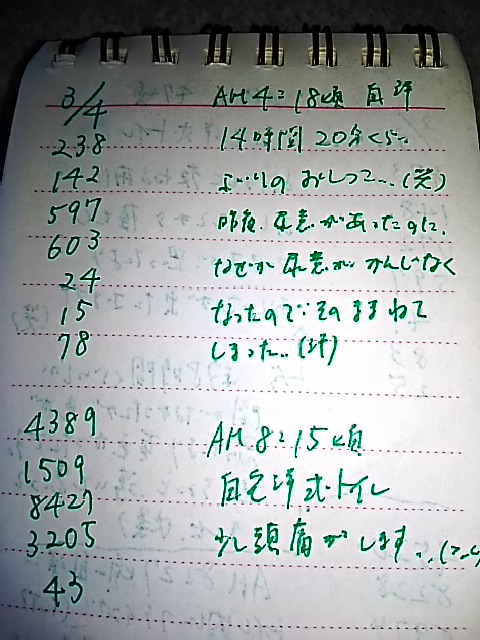 3/4 AM4:18頃 自洋
238 14時間20分くらい
142 ぶりのおしっこ...(笑)
597 昨夜、尿意があったのに、
603 なぜか尿意がかんじなく
24 なったのでそのままねて
15 しまった..(汗)
78
4389 AM8:15頃
1509 自宅洋式トイレ
8427 少し頭痛がします...
3205
43